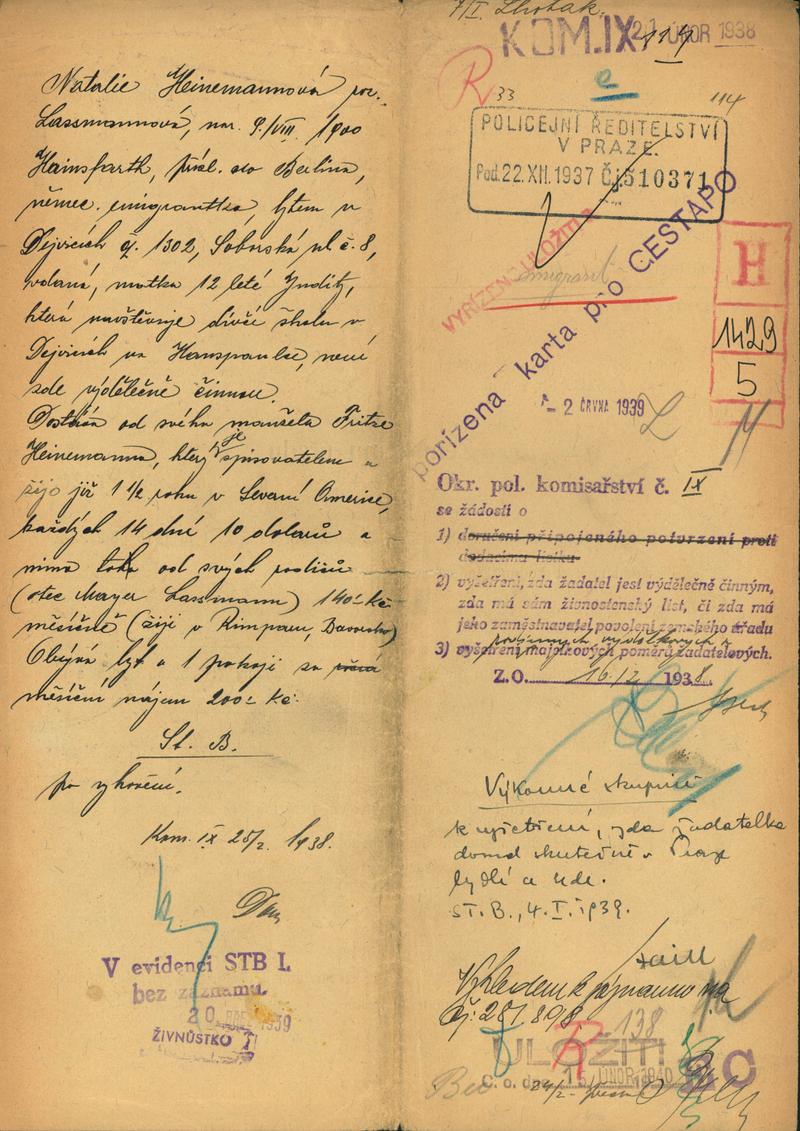 Natalie Heinemannová roz.
Lassmannová, nar. 9./VIII. 1900
Hainsfarth, přísl. do Berlína,
němec. emigrantka, bytem v
Dejvicích č. 1302, Soborská ul č. 8,
vdaná, matka 12 leté Judity,
která navštěvuje dívčí školu v
Dejvicích na Hanspaulce, není
zde výdělečně činnou.
Dostává od svého manžela Fritze
Heinemanna, který je spisovatelem a
žije již 1 1/2 roku v Severní Americe,
každých 14 dní 10 dolarů a
mimo toho od svých rodičů
(otec Mayer Lassmann) 140.- Kč
měsíčně (žijí v Rimparu, Bavorsko)
Obývá byt o 1 pokoji za
měsíční nájem 200.- Kč.
St. B.
po vyhovění.
Kom. IX 25/2. 1938.
V evidenci STB I.
bez záznamu.
20. 1939
ŽIVNŮSTKO
7/I. Lhoták
KOM. IX 21 ÚNOR 1938
R 33 114
POLICEJNÍ ŘEDITELSTVÍ
V PRAZE.
Pod. 22. XII. 1937 Č.j. 510371
VYŘÍZENO ULOŽMO
emigranti
pořízena karta pro GESTAPO
H
1429
5
- 2 ČRVNA 1939
Okr. pol. komisařství č. IX
se žádosti o
1) doručení připojeného potvrzení proti
dodacímu lístku.
2) vyšetření, zda žadatel jest výdělečně činným,
zda má sám živnostenský list, či zda má
jeho zaměstnavatel povolení zemského úřadu
3) vyšetření majetkových poměrů žadatelových.
Z. O. 16/2 1938.
Výkonné skupině
k vyšetření, zda žadatelka
dosud skutečně v Praze
bydlí a kde.
ST. B., 4. I. 1939.
Vzhledem k
Čj: 28
R 138
ULOŽITI
C. o. d. 15. ÚNOR 1940